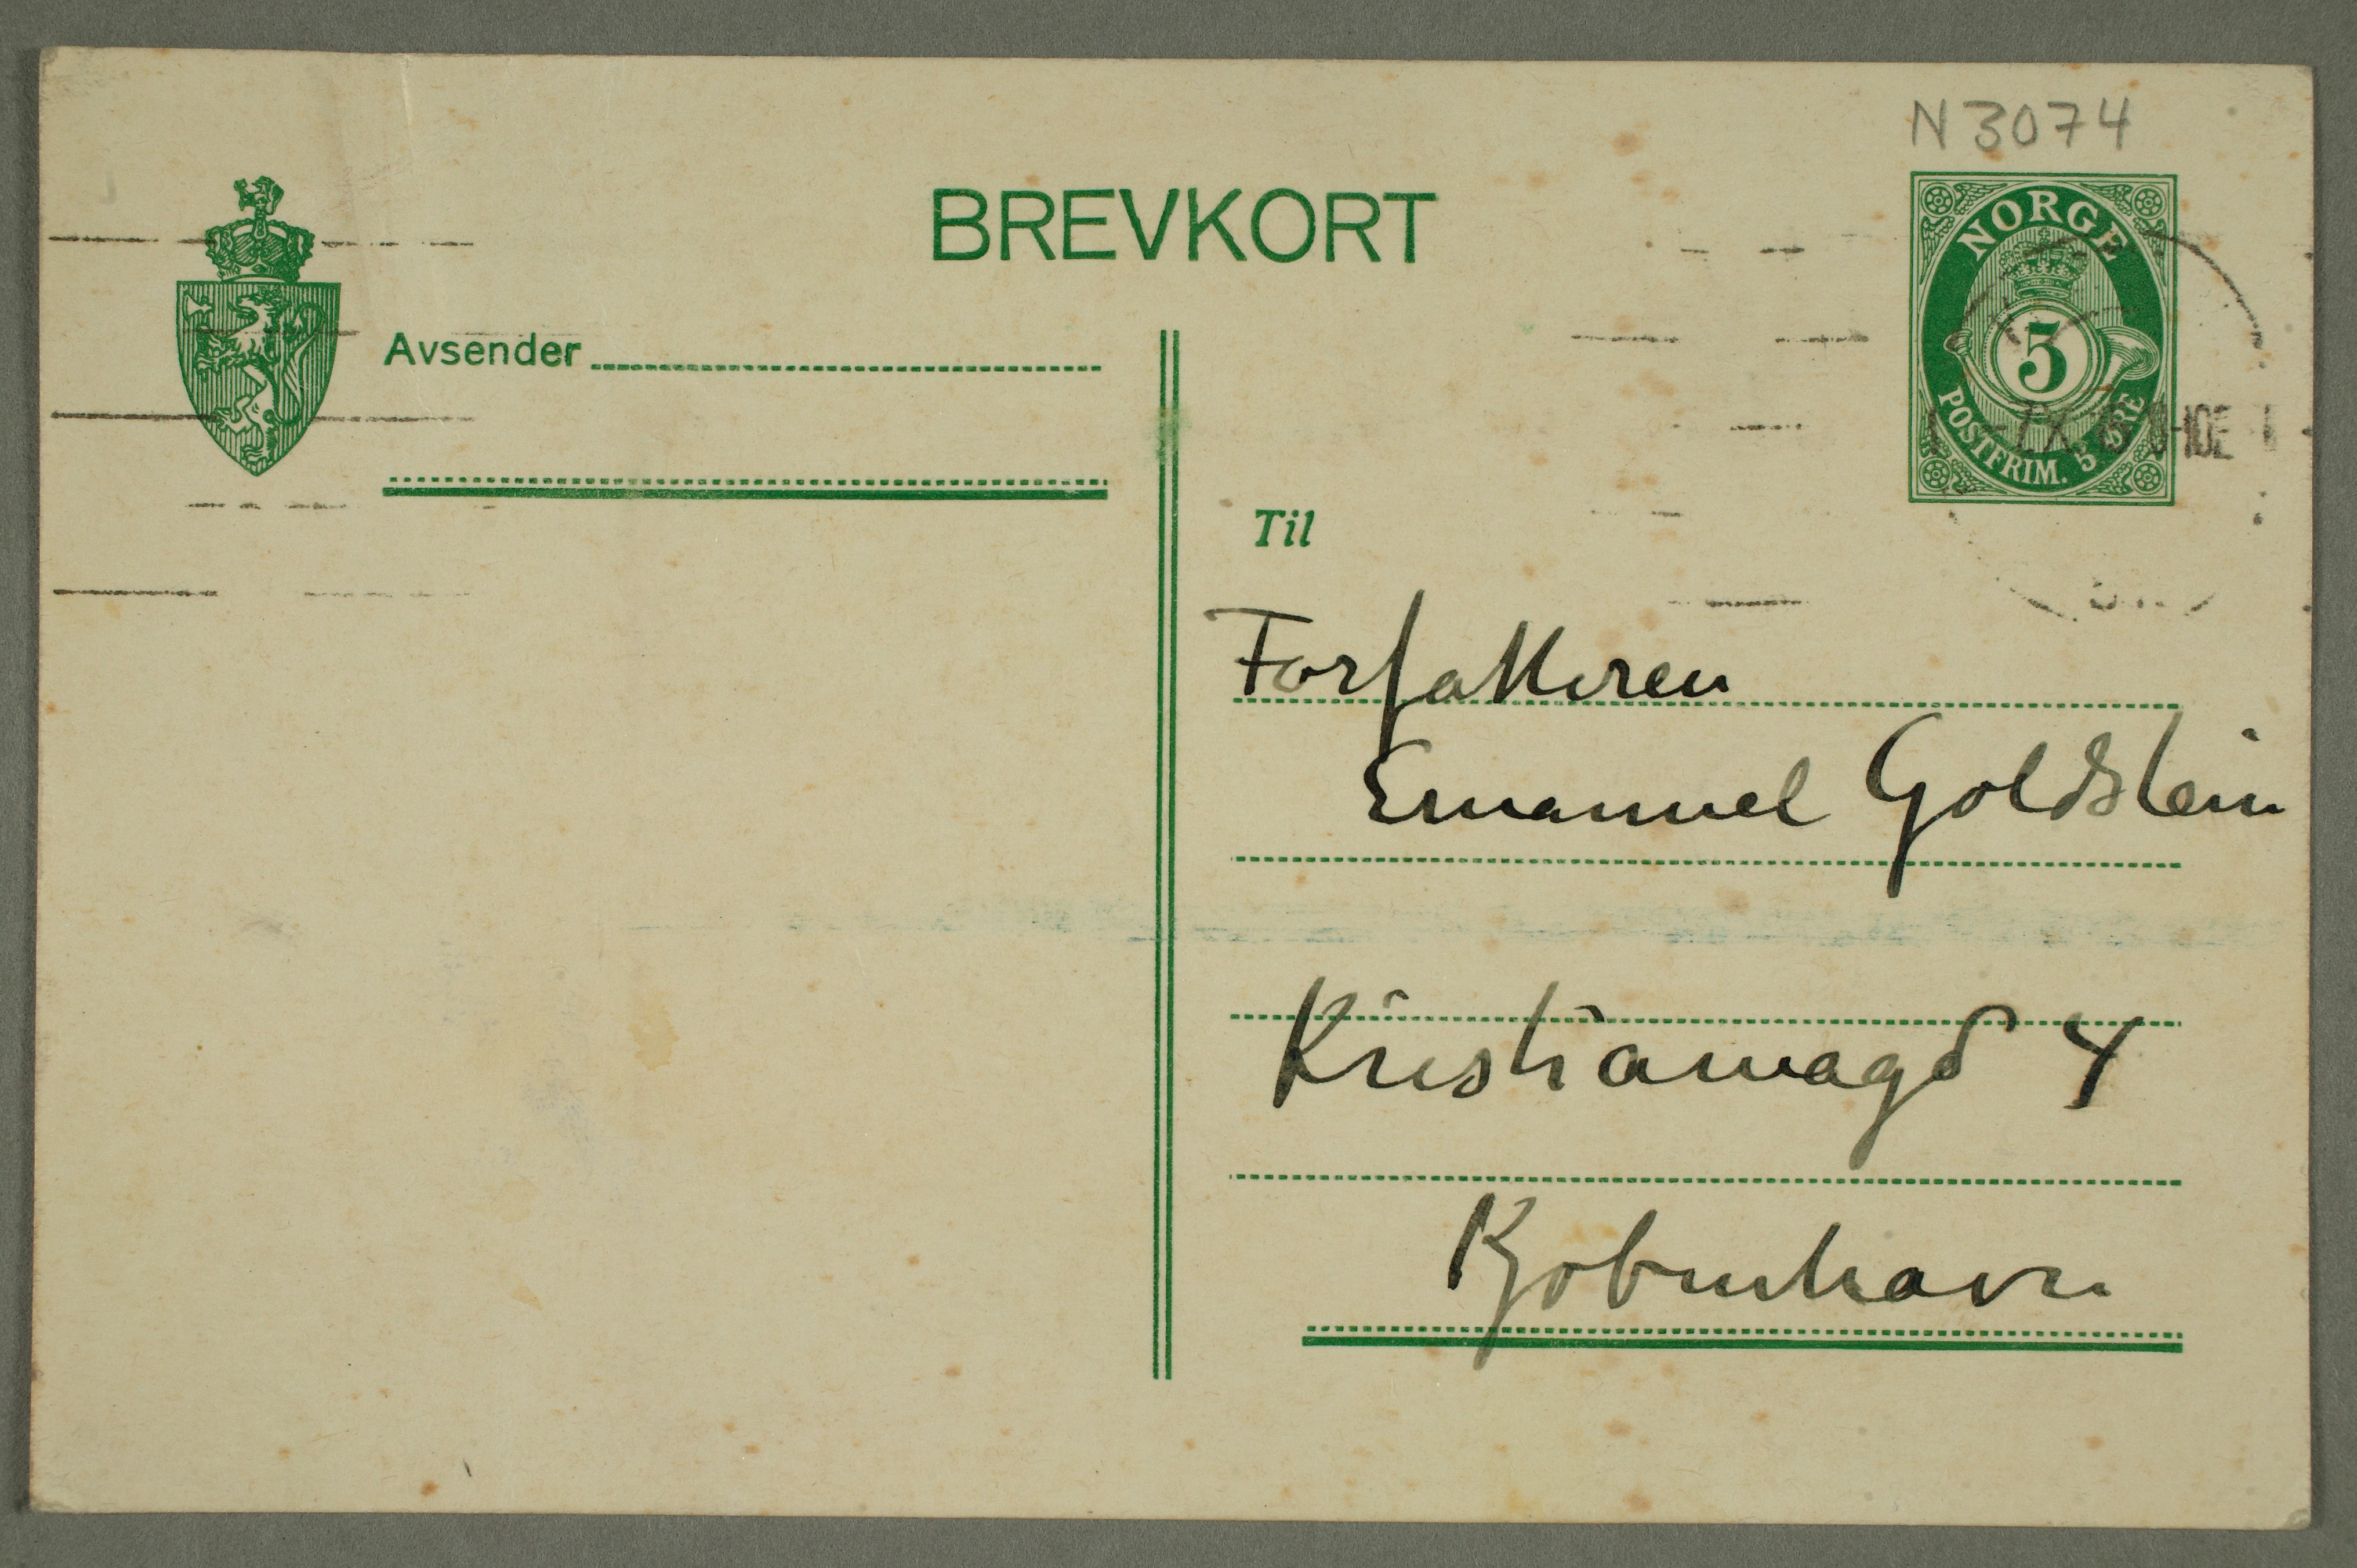 N3074
BREVKORT
NORGE
5
POSTFRIM. 5 ØRE
Avsender
Til
Forfatteren
Emanuel Goldstein
Kristianiagd 4
Kjøbenhavn